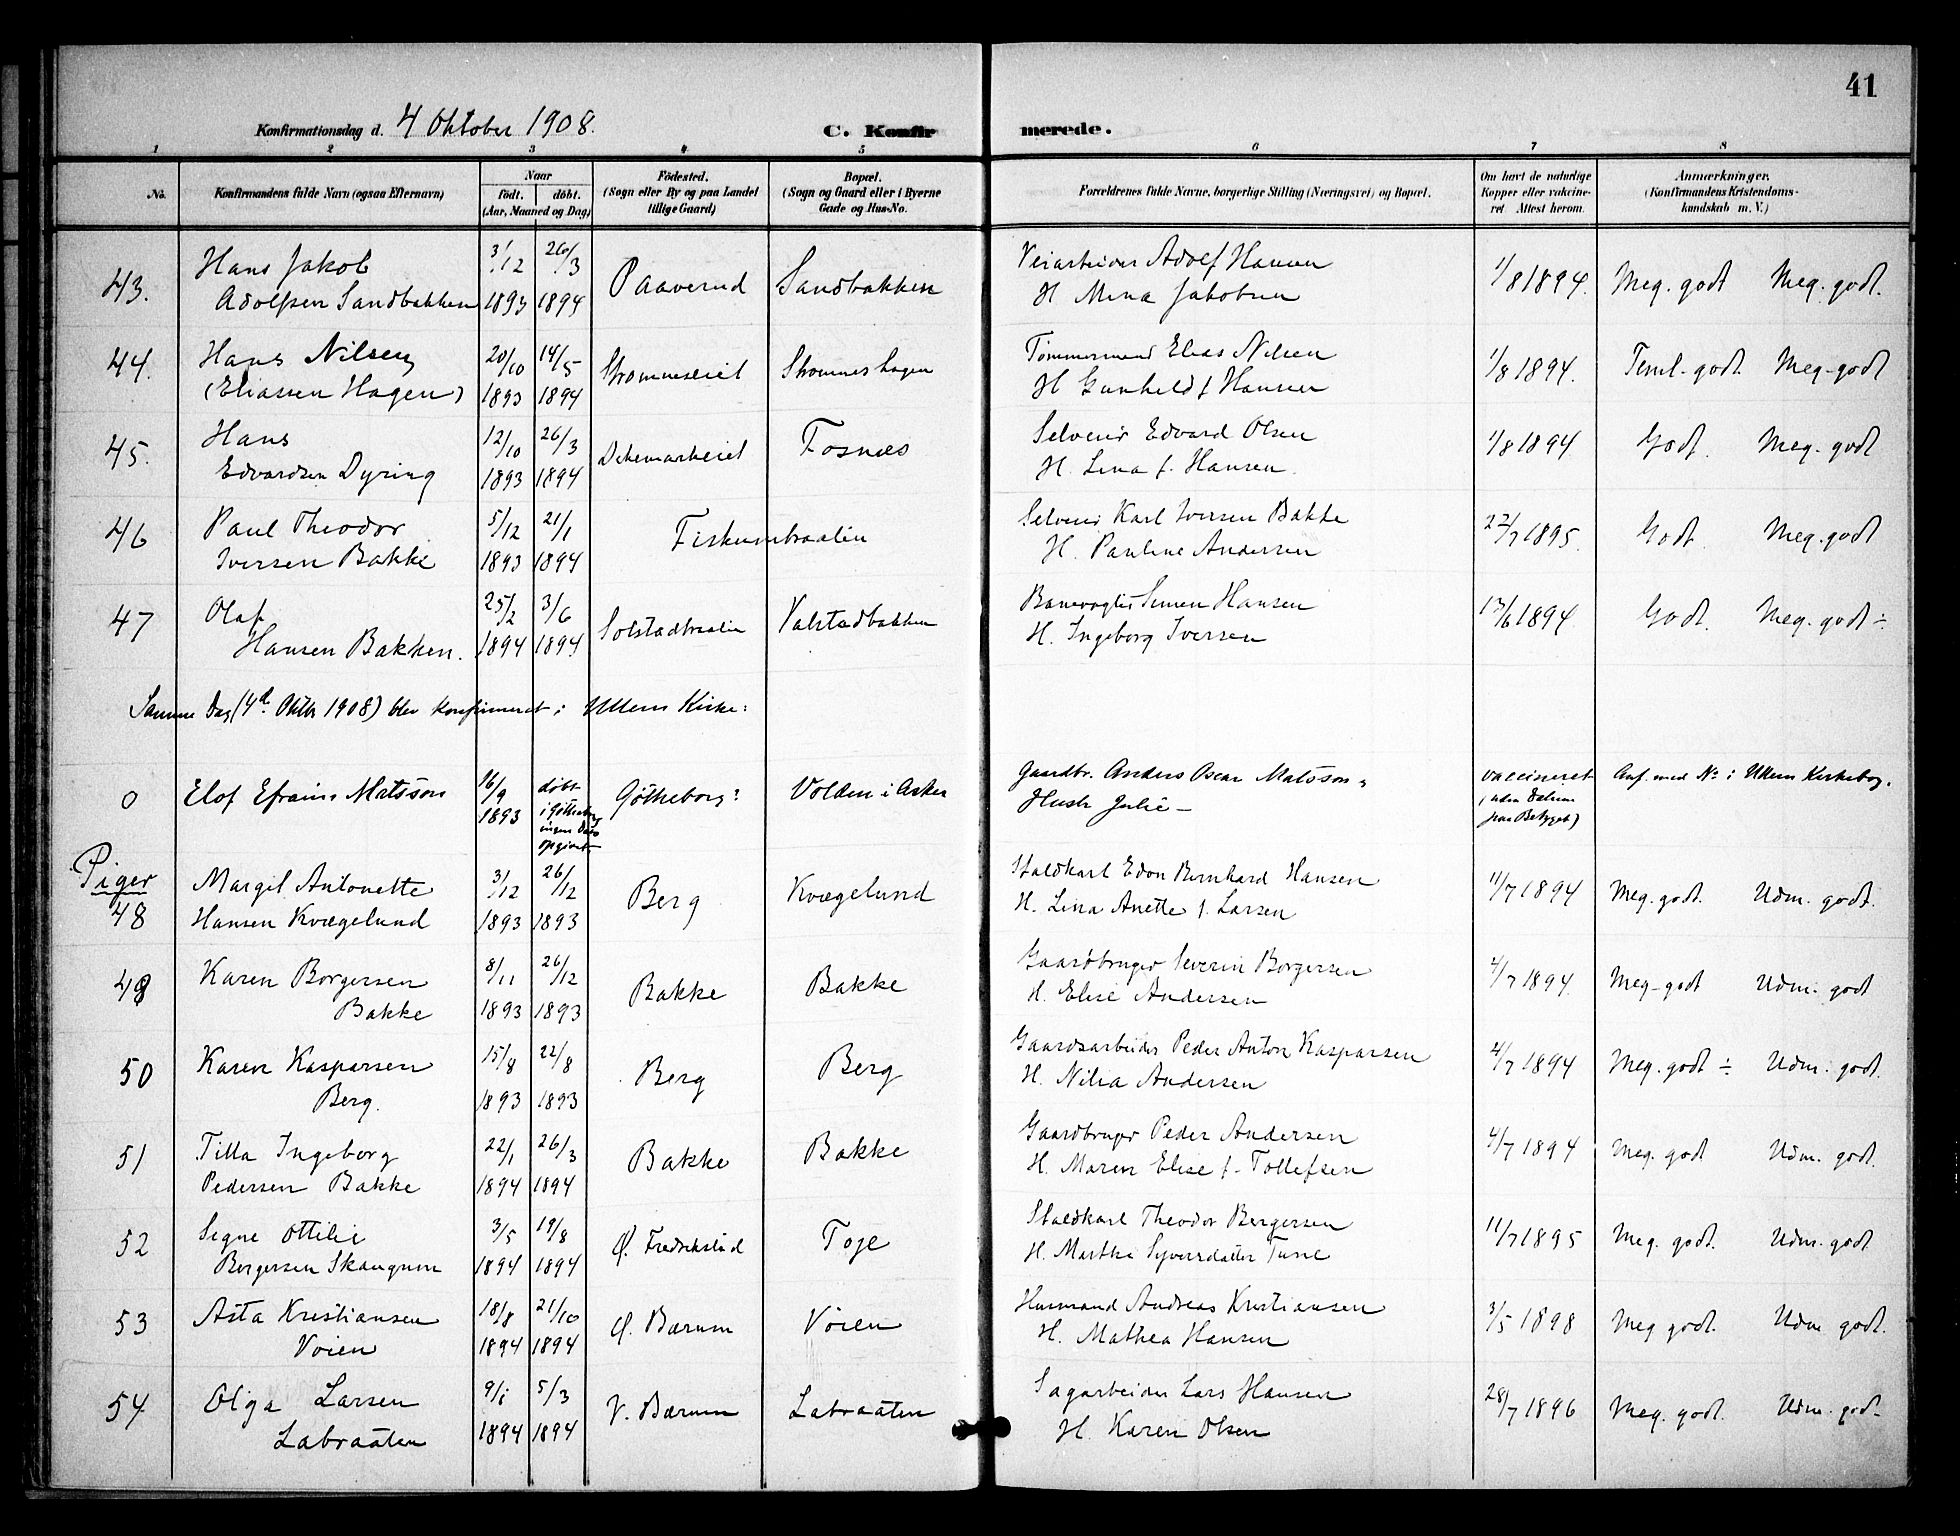 41
Konfirmationsdag d. 4 Oktober 1908.
C. Konfirmerede.
1 2 3 4 5 6 7 8
No.
Konfirmandens fulde Navn (ogsaa Efternavn)
Naar
født. døbt.
(Aar, Maaned og Dag)
Fødested.
(Sogn eller By og paa Landet
tillige Gaard)
Bopæl.
(Sogn og Gaard eller i Byerne
Gade og Hus-No.
Forældrenes fulde Navne, borgerlige Stilling (Næringsvei) og Bopæl.
Om havt de naturlige
Kopper eller vakcine-
ret Attest herom.
Anmærkninger.
(Konfirmandens Kristendoms-
kundskab m. V.)
43. Hans Jakob 3/12 26/3 Paaverud Sandbakken Veiarbeider Adolf Hansen 1/8 1894. Meg. godt Meg. godt.
Adolfsen Sandbakken 1893 1894 H Mina Jakobsen
44. Hans Nilsen 20/10 14/5 Strømsseiet Strømshagen Tømmermand Elias Nilsen 1/8 1894. Teml. godt. Meg. godt
(Eliassen Hagen) 1893 1894 H Gunhild f Hansen
45. Hans 12/10 26/3 Dikemarkeiet Fosnæs Selveier Edvard Olsen 1/8 1894. Godt. Meg. godt
Edvardsen Dyring 1893 1894 H. Lina f. Hansen.
46 Paul Theodor 5/12 21/1 Fiskumbraaten Selveier Karl Iversen Bakke 22/7 1895. Godt. Meg. godt
Iversen Bakke 1893 1894 H. Pauline Andersen
47 Olaf 25/2 3/6 Solstadbraaten Valstadbakken Banevogter Simen Hansen 13/6 1894. Godt. Meg. godt ÷
Hansen Bakken. 1894 1894 H. Ingeborg Iversen
Samme Dag (4de Oktbr 1908) blev konfirmeret i Ullern Kirke:
0 Elof Efraim Matsson 16/9 1893 døbt i Götheborg ingen Dato opgivet Götheborg: Volden i Asker Gaardbr. Anders Oscar Matsson
Hustr Julie – vaccineret (uden Datum paa Betyget) Anf. med No i Ullern Kirkebog.
Piger
48 Margit Antonette 3/12 26/12 Berg Kvægelund Staldkarl Edon Bernhard Hansen 11/7 1894 Meg. godt. Udm. godt.
Hansen Kvægelund 1893 1893 H. Lina Anette f. Larsen
49 Karen Borgersen 8/11 26/12 Bakke Bakke Gaardbruger Severin Borgersen 4/7 1894. Meg. godt Udm. godt
Bakke 1893 1893 H. Elise Andersen
50 Karen Kaspersen 15/8 22/8 Berg Berg Gaardsarbeider Peder Anton Kaspersen 4/7 1894 Meg. godt ÷ Udm. godt.
Berg. 1893 1893 H. Nilia Andersen
51 Tilla Ingeborg 22/1 26/3 Bakke Bakke Gaardbruger Peder Andersen 4/7 1894 Meg. godt Udm. godt.
Pedersen Bakke 1894 1894 H. Maren Elise f. Tollefsen
52 Signe Ottilie 3/5 19/8 Ø. Fredrikstad Toje Staldkarl Theodor Bergersen 11/7 1895 Meg. godt. Udm. godt
Bergersen Skaugum 1894 1894 H. Marthe Syversdatter Tune
53 Asta Kristiansen 18/8 21/10 Ø. Bærum Voien Husmand Andreas Kristiansen 3/5 1898 Meg godt. Udm godt.
Voien 1894 1894 H. Mathea Hansen
54 Olga Larsen 9/1 5/3 V. Bærum Labraaten Sagarbeider Lars Hansen 28/7 1896 Meg. godt. Udm. godt
Labraaten 1894 1894 H. Karen Olsen